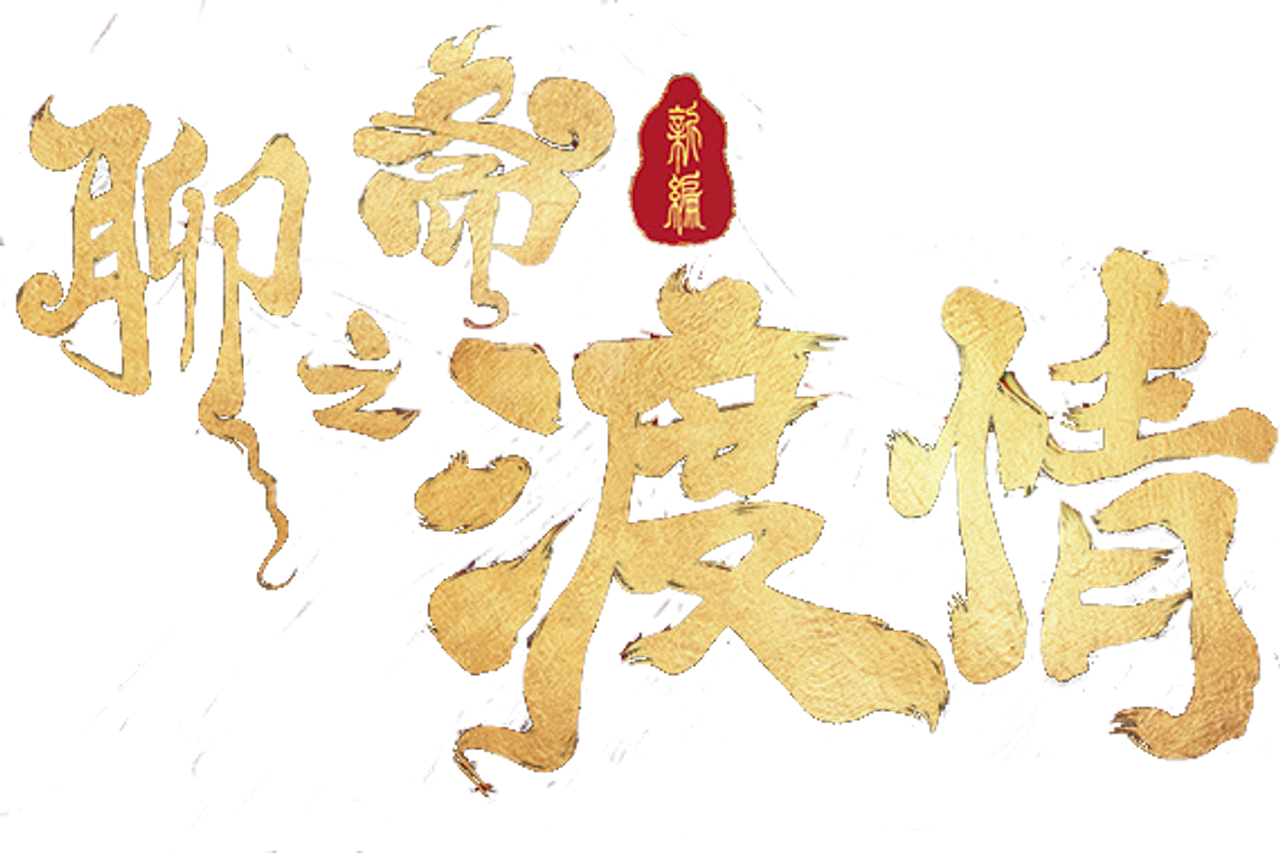 聊斋
新編
之渡情